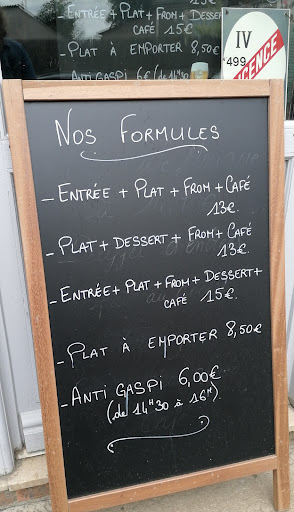 - ENTRÉE + PLAT + FROM + DESSERT
CAFÉ 15€
- PLAT À EMPORTER 8,50€
ANTI GASPI 6€ (de 14H30
IV
LICENCE
499
NOS FORMULES
- ENTRÉE + PLAT + FROM + CAFÉ
13€.
- PLAT + DESSERT + FROM + CAFÉ
13€.
- ENTRÉE + PLAT + FROM + DESSERT +
CAFÉ 15€.
- PLAT À EMPORTER 8,50€
- ANTI GASPI 6,00€.
(de 14H30 à 16H)